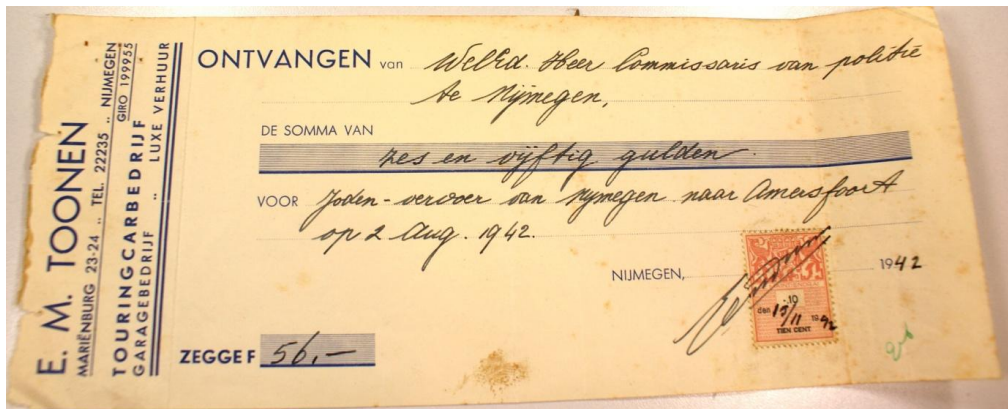 E. M. TOONEN
MARIËNBURG 23-24 .. TEL. 22235 .. NIJMEGEN
GIRO 199955
TOURINGCARBEDRIJF
GARAGEBEDRIJF .. LUXE VERHUUR
ONTVANGEN van WelEd. Heer Commissaris van politie
te Nijmegen,
DE SOMMA VAN
zes en vijftig gulden
VOOR Joden-vervoer van Nijmegen naar Amersfoort
op 2 Aug. 1942.
NIJMEGEN, 1942
10
den 15/11 1942
TIEN CENT
ZEGGE F 56,-